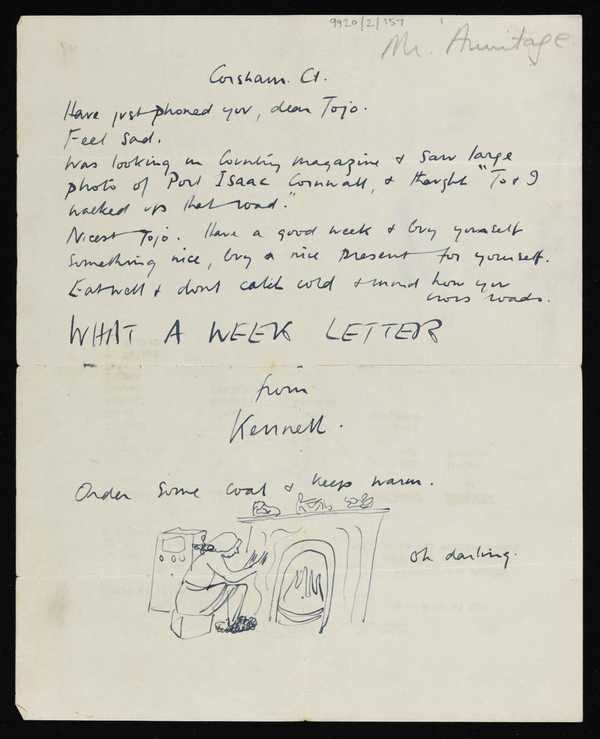 9920/2/157
Mr. Armitage
Corsham. Ct.
Have just phoned you, dear Tojo.
Feel sad.
Was looking in Country magazine & saw large
photo of Port Isaac Cornwall, & thought "To & I
walked up that road."
Nicest Tojo. Have a good week & buy yourself
something nice, buy a nice present for yourself.
Eat well & dont catch cold & mind how you
cross roads.
WHAT A WEEK LETTER
from
Kenneth.
Order some coal & keep warm.
Oh darling.